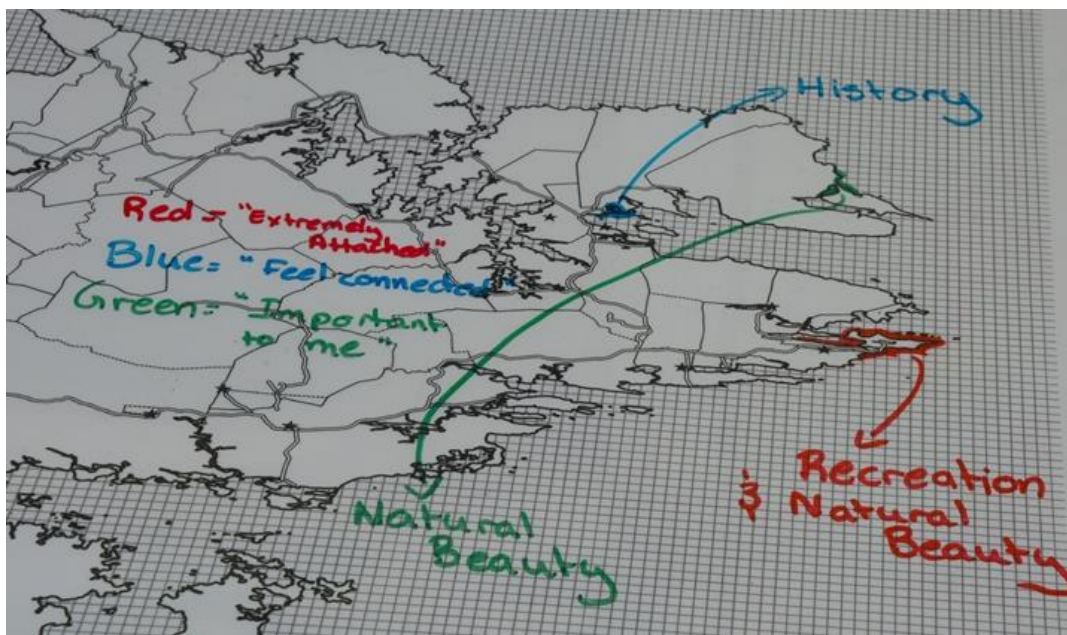 History
Red = "Extremely
Attached"
Blue = "Feel connected"
Green = "Important
to me"
Recreation
& Natural
Beauty
Natural
Beauty